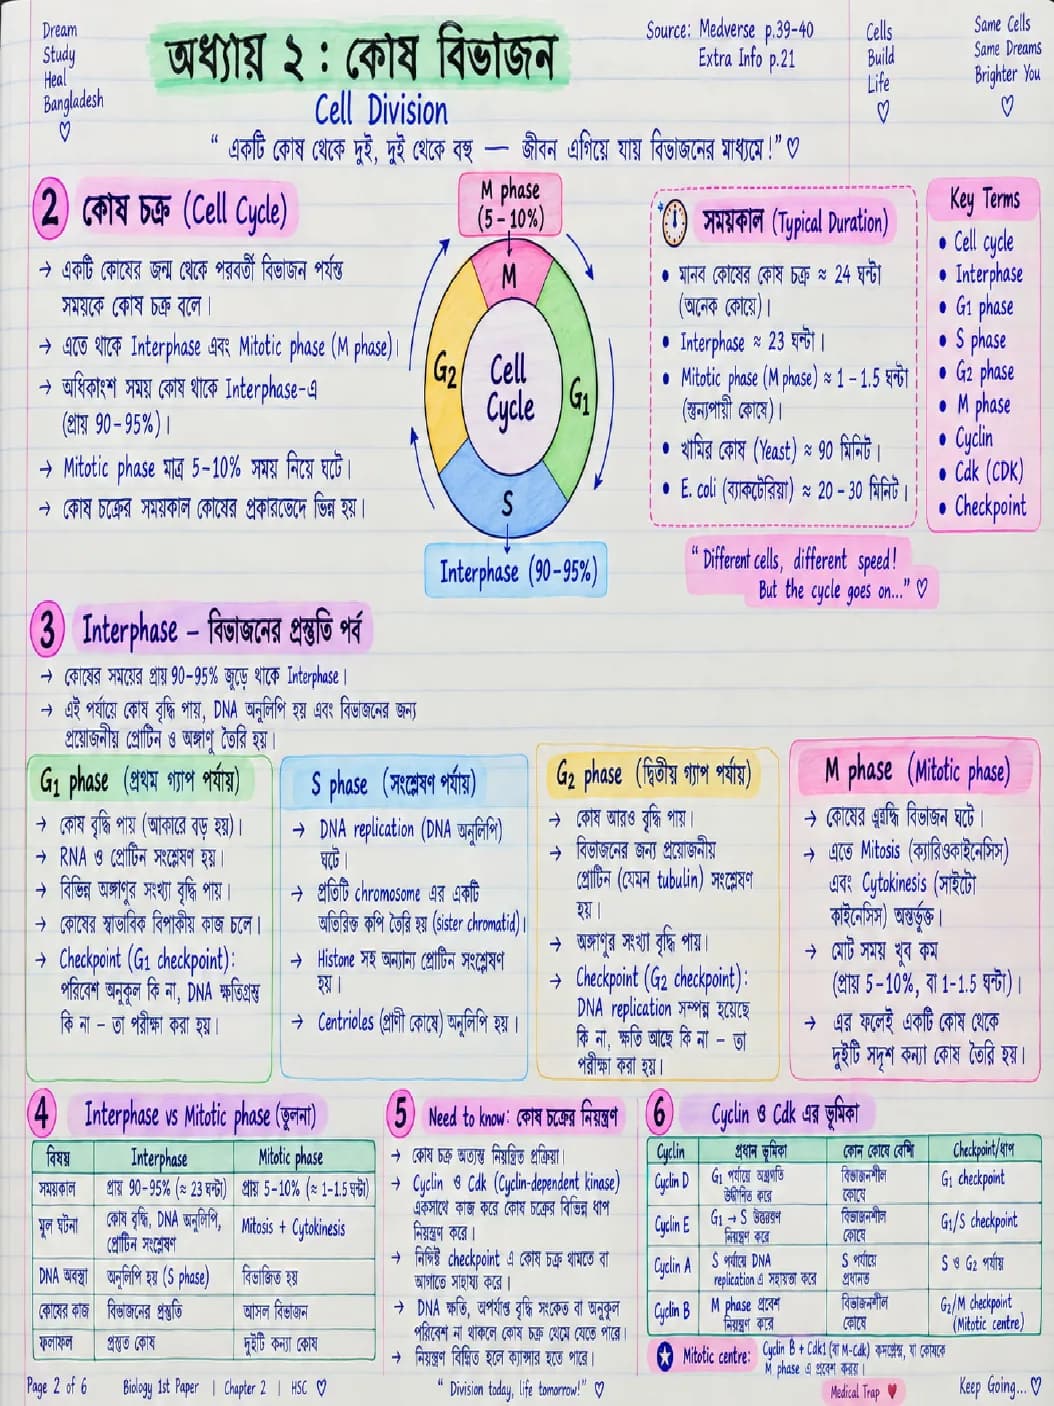 Dream
Study
Heal
Bangladesh
অধ্যায় ২ : কোষ বিভাজন
Cell Division
Source: Medverse p.39-40
Extra Info p.21
Cells
Build
Life
Same Cells
Same Dreams
Brighter You
“ একটি কোষ থেকে দুই, দুই থেকে বহু — জীবন এগিয়ে যায় বিভাজনের মাধ্যমে !”
2 কোষ চক্র (Cell Cycle)
→ একটি কোষের জন্ম থেকে পরবর্তী বিভাজন পর্যন্ত
সময়কে কোষ চক্র বলে।
→ এতে থাকে Interphase এবং Mitotic phase (M phase)।
→ অধিকাংশ সময় কোষ থাকে Interphase-এ
(প্রায় 90-95%)।
→ Mitotic phase মাত্র 5-10% সময় নিয়ে ঘটে।
→ কোষ চক্রের সময়কাল কোষের প্রকারভেদে ভিন্ন হয়।
M phase
(5-10%)
M
G2
G1
Cell
Cycle
S
Interphase (90-95%)
সময়কাল (Typical Duration)
• মানব কোষের কোষ চক্র ≈ 24 ঘন্টা
(অনেক কোষে)।
• Interphase ≈ 23 ঘন্টা।
• Mitotic phase (M phase) ≈ 1-1.5 ঘন্টা
(স্তন্যপায়ী কোষে)।
• খামির কোষ (Yeast) ≈ 90 মিনিট।
• E. coli (ব্যাকটেরিয়া) ≈ 20-30 মিনিট।
Key Terms
• Cell cycle
• Interphase
• G1 phase
• S phase
• G2 phase
• M phase
• Cyclin
• Cdk (CDK)
• Checkpoint
“ Different cells, different speed!
But the cycle goes on...”
3 Interphase – বিভাজনের প্রস্তুতি পর্ব
→ কোষের সময়ের প্রায় 90-95% জুড়ে থাকে Interphase।
→ এই পর্যায়ে কোষ বৃদ্ধি পায়, DNA অনুলিপি হয় এবং বিভাজনের জন্য
প্রয়োজনীয় প্রোটিন ও অঙ্গাণু তৈরি হয়।
G1 phase (প্রথম গ্যাপ পর্যায়)
→ কোষ বৃদ্ধি পায় (আকারে বড় হয়)।
→ RNA ও প্রোটিন সংশ্লেষণ হয়।
→ বিভিন্ন অঙ্গাণুর সংখ্যা বৃদ্ধি পায়।
→ কোষের স্বাভাবিক বিপাকীয় কাজ চলে।
→ Checkpoint (G1 checkpoint):
পরিবেশ অনুকূল কি না, DNA ক্ষতিগ্রস্ত
কি না – তা পরীক্ষা করা হয়।
S phase (সংশ্লেষণ পর্যায়)
→ DNA replication (DNA অনুলিপি)
ঘটে।
→ প্রতিটি chromosome এর একটি
অতিরিক্ত কপি তৈরি হয় (sister chromatid)।
→ Histone সহ অন্যান্য প্রোটিন সংশ্লেষণ
হয়।
→ Centrioles (প্রাণী কোষে) অনুলিপি হয়।
G2 phase (দ্বিতীয় গ্যাপ পর্যায়)
→ কোষ আরও বৃদ্ধি পায়।
→ বিভাজনের জন্য প্রয়োজনীয়
প্রোটিন (যেমন tubulin) সংশ্লেষণ
হয়।
→ অঙ্গাণুর সংখ্যা বৃদ্ধি পায়।
→ Checkpoint (G2 checkpoint):
DNA replication সম্পন্ন হয়েছে
কি না, ক্ষতি আছে কি না – তা
পরীক্ষা করা হয়।
M phase (Mitotic phase)
→ কোষের বিভাজন ঘটে।
→ এতে Mitosis (ক্যারিওকাইনেসিস)
এবং Cytokinesis (সাইটো
কাইনেসিস) অন্তর্ভুক্ত।
→ মোট সময় খুব কম
(প্রায় 5-10%, বা 1-1.5 ঘন্টা)।
→ এর ফলেই একটি কোষ থেকে
দুইটি সদৃশ কন্যা কোষ তৈরি হয়।
4 Interphase vs Mitotic phase (তুলনা)
বিষয় Interphase Mitotic phase
সময়কাল প্রায় 90-95% (≈ 23 ঘন্টা) প্রায় 5-10% (≈ 1-1.5 ঘন্টা)
মূল ঘটনা কোষ বৃদ্ধি, DNA অনুলিপি, প্রোটিন সংশ্লেষণ Mitosis + Cytokinesis
DNA অবস্থা অনুলিপি হয় (S phase) বিভাজিত হয়
কোষের কাজ বিভাজনের প্রস্তুতি আসল বিভাজন
ফলাফল প্রস্তুত কোষ দুইটি কন্যা কোষ
5 Need to know: কোষ চক্রের নিয়ন্ত্রণ
→ কোষ চক্র অত্যন্ত নিয়ন্ত্রিত প্রক্রিয়া।
→ Cyclin ও Cdk (Cyclin-dependent kinase)
একসাথে কাজ করে কোষ চক্রের বিভিন্ন ধাপ
নিয়ন্ত্রণ করে।
→ নির্দিষ্ট checkpoint এ কোষ চক্র থামতে বা
আগাতে সাহায্য করে।
→ DNA ক্ষতি, অপর্যাপ্ত বৃদ্ধি সংকেত বা অনুকূল
পরিবেশ না থাকলে কোষ চক্র থেমে যেতে পারে।
→ নিয়ন্ত্রণ বিঘ্নিত হলে ক্যান্সার হতে পারে।
6 Cyclin ও Cdk এর ভূমিকা
Cyclin প্রধান ভূমিকা কোন কোষে বেশি Checkpoint/ধাপ
Cyclin D G1 পর্যায়ে অগ্রগতি উদ্দীপিত করে বিভাজনশীল কোষে G1 checkpoint
Cyclin E G1 → S উত্তরণ নিয়ন্ত্রণ করে বিভাজনশীল কোষে G1/S checkpoint
Cyclin A S পর্যায়ে DNA replication এ সহায়তা করে S পর্যায়ে প্রধানত S ও G2 পর্যায়
Cyclin B M phase প্রবেশ নিয়ন্ত্রণ করে বিভাজনশীল কোষে G2/M checkpoint (Mitotic centre)
Mitotic centre: Cyclin B + Cdk1 (বা M-Cdk) কমপ্লেক্স, যা কোষকে
M phase এ প্রবেশ করায়।
Page 2 of 6 Biology 1st Paper | Chapter 2 | HSC
“ Division today, life tomorrow!”
Medical Trap
Keep Going...